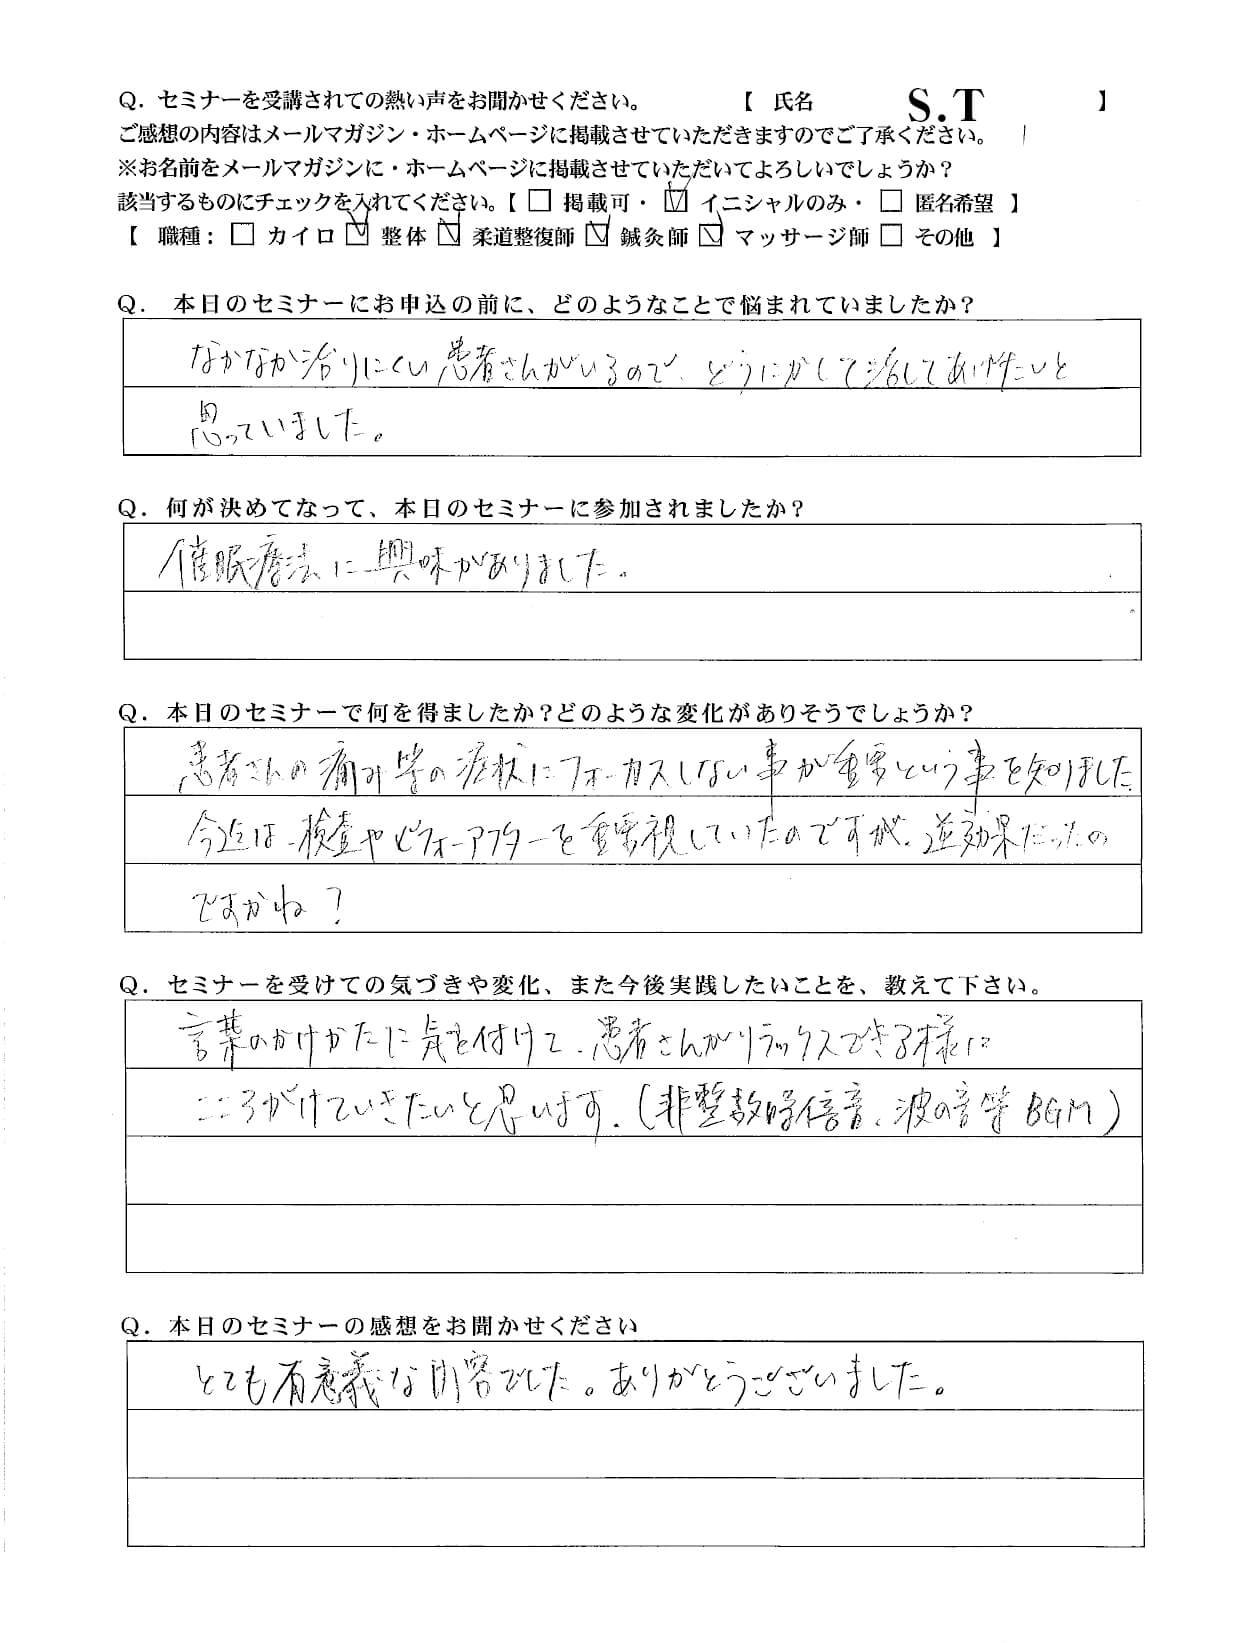 Q. セミナーを受講されての熱い声をお聞かせください。 【 氏名 S.T 】
ご感想の内容はメールマガジン・ホームページに掲載させていただきますのでご了承ください。
※お名前をメールマガジンに・ホームページに掲載させていただいてよろしいでしょうか？
該当するものにチェックを入れてください。【 □ 掲載可・ ☑ イニシャルのみ・ □ 匿名希望 】
【 職種： □ カイロ ☑ 整体 ☑ 柔道整復師 ☑ 鍼灸師 ☑ マッサージ師 □ その他 】
Q. 本日のセミナーにお申込の前に、どのようなことで悩まれていましたか？
なかなか治りにくい患者さんがいるので、どうにかして治してあげたいと
思っていました。
Q. 何が決めてなって、本日のセミナーに参加されましたか？
催眠療法に興味がありました。
Q. 本日のセミナーで何を得ましたか？どのような変化がありそうでしょうか？
患者さんの痛み等の症状にフォーカスしない事が重要という事を知りました
今迄は、検査やビフォーアフターを重要視していたのですが、逆効果だったの
ですかね？
Q. セミナーを受けての気づきや変化、また今後実践したいことを、教えて下さい。
言葉のかけかたに気を付けて、患者さんがリラックスできる様に
こころがけていきたいと思います。(非整数時倍音、波の音等BGM)
Q. 本日のセミナーの感想をお聞かせください
とても有意義な内容でした。ありがとうございました。